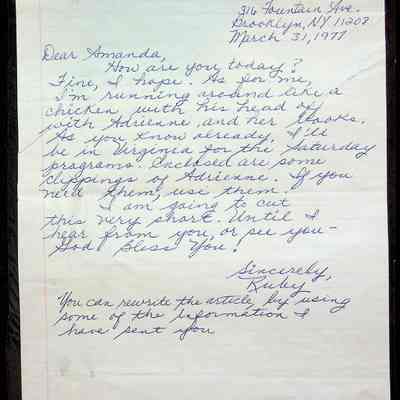 316 Fountain Ave.
Brooklyn, NY 11208
March 31, 1977
Dear Amanda,
How are you today?
Fine, I hope. As for me,
I'm running around like a
chicken with his head off
with Adrienne, and her books.
As you know already, I'll
be in Virginia for the Saturday
programs. Enclosed are some
clippings of Adrienne. If you
need them, use them.
I am going to cut
this very short. Until I
hear from you, or see you—
God Bless You!
Sincerely,
Ruby
You can rewrite the article, by using
some of the information I
have sent you